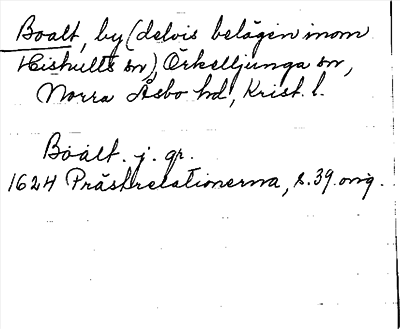 Boalt, by (delvis belägen inom
Hishults sn) Örkelljunga sn,
Norra Åsbo hd, Krist. l.
Böält. j. gr.
1624 Prästrelationerna, s. 39. orig.